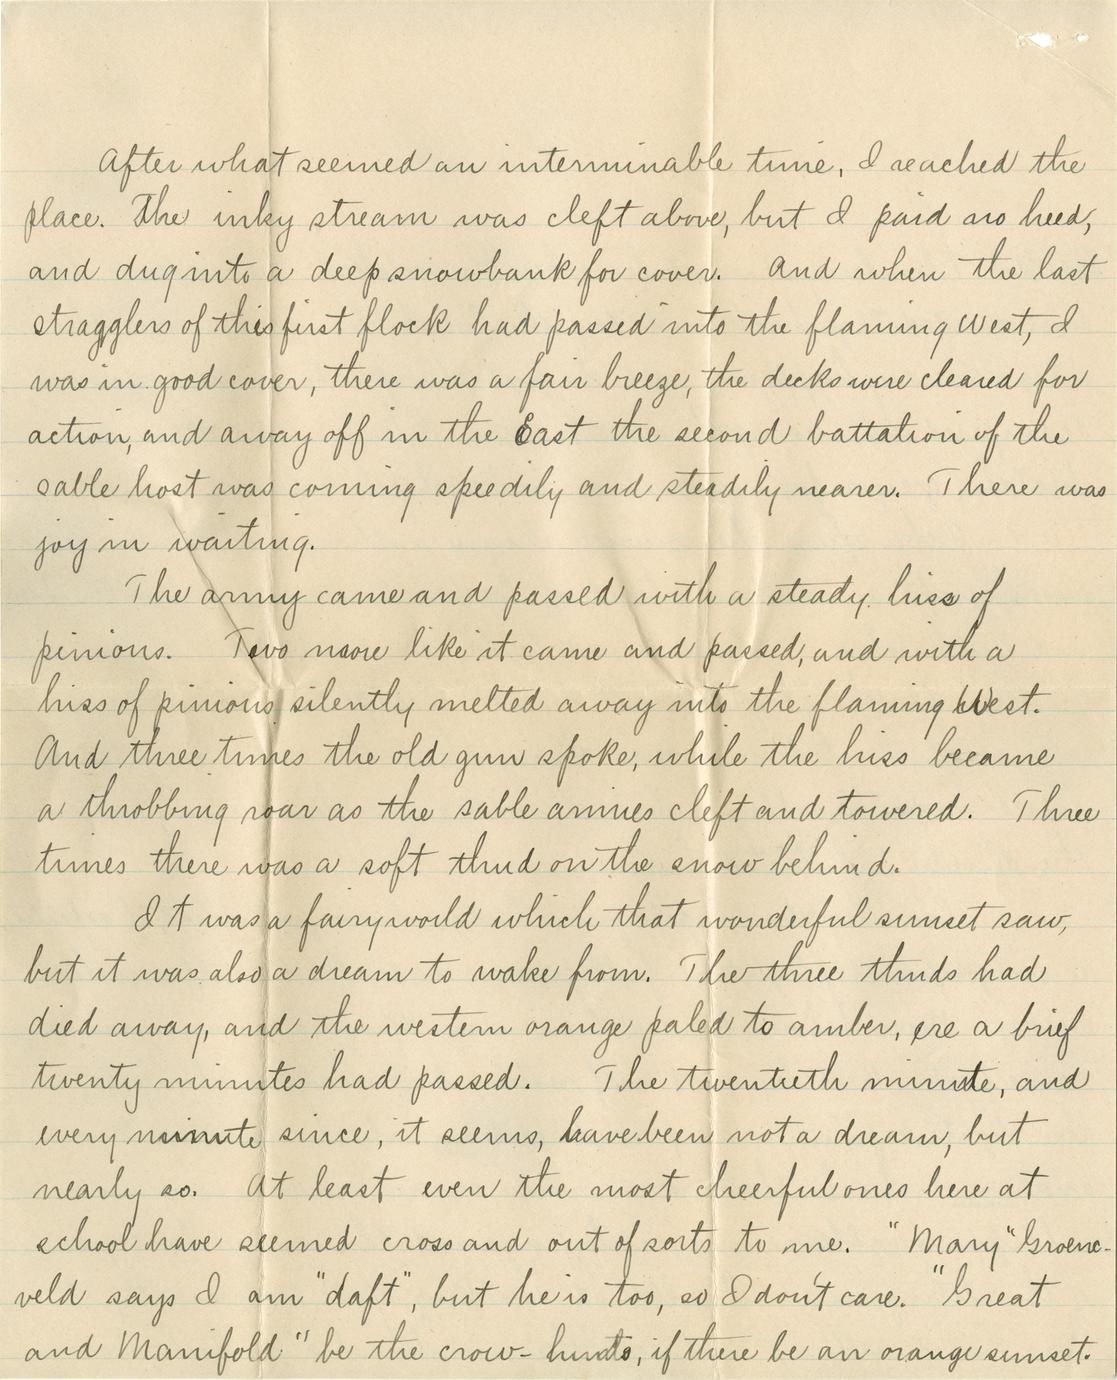 After what seemed an interminable time, I reached the
place. The inky stream was cleft above, but I paid no heed,
and dug into a deep snowbank for cover. And when the last
stragglers of this first flock had passed into the flaming West, I
was in good cover, there was a fair breeze, the decks were cleared for
action, and away off in the East the second battalion of the
sable host was coming speedily and steadily nearer. There was
joy in waiting.
The army came and passed with a steady hiss of
pinions. Two more like it came and passed, and with a
hiss of pinions silently melted away into the flaming West.
And three times the old gun spoke, while the hiss became
a throbbing roar as the sable armies cleft and towered. Three
times there was a soft thud on the snow behind.
It was a fairy world which that wonderful sunset saw,
but it was also a dream to wake from. The three thuds had
died away, and the western orange paled to amber, ere a brief
twenty minutes had passed. The twentieth minute, and
every minute since, it seems, have been not a dream, but
nearly so. At least even the most cheerful ones here at
school have seemed cross and out of sorts to me. "Mary" Groene-
veld says I am "daft", but he is too, so I don't care. "Great
and Manifold" be the crow-hunts, if there be an orange sunset.